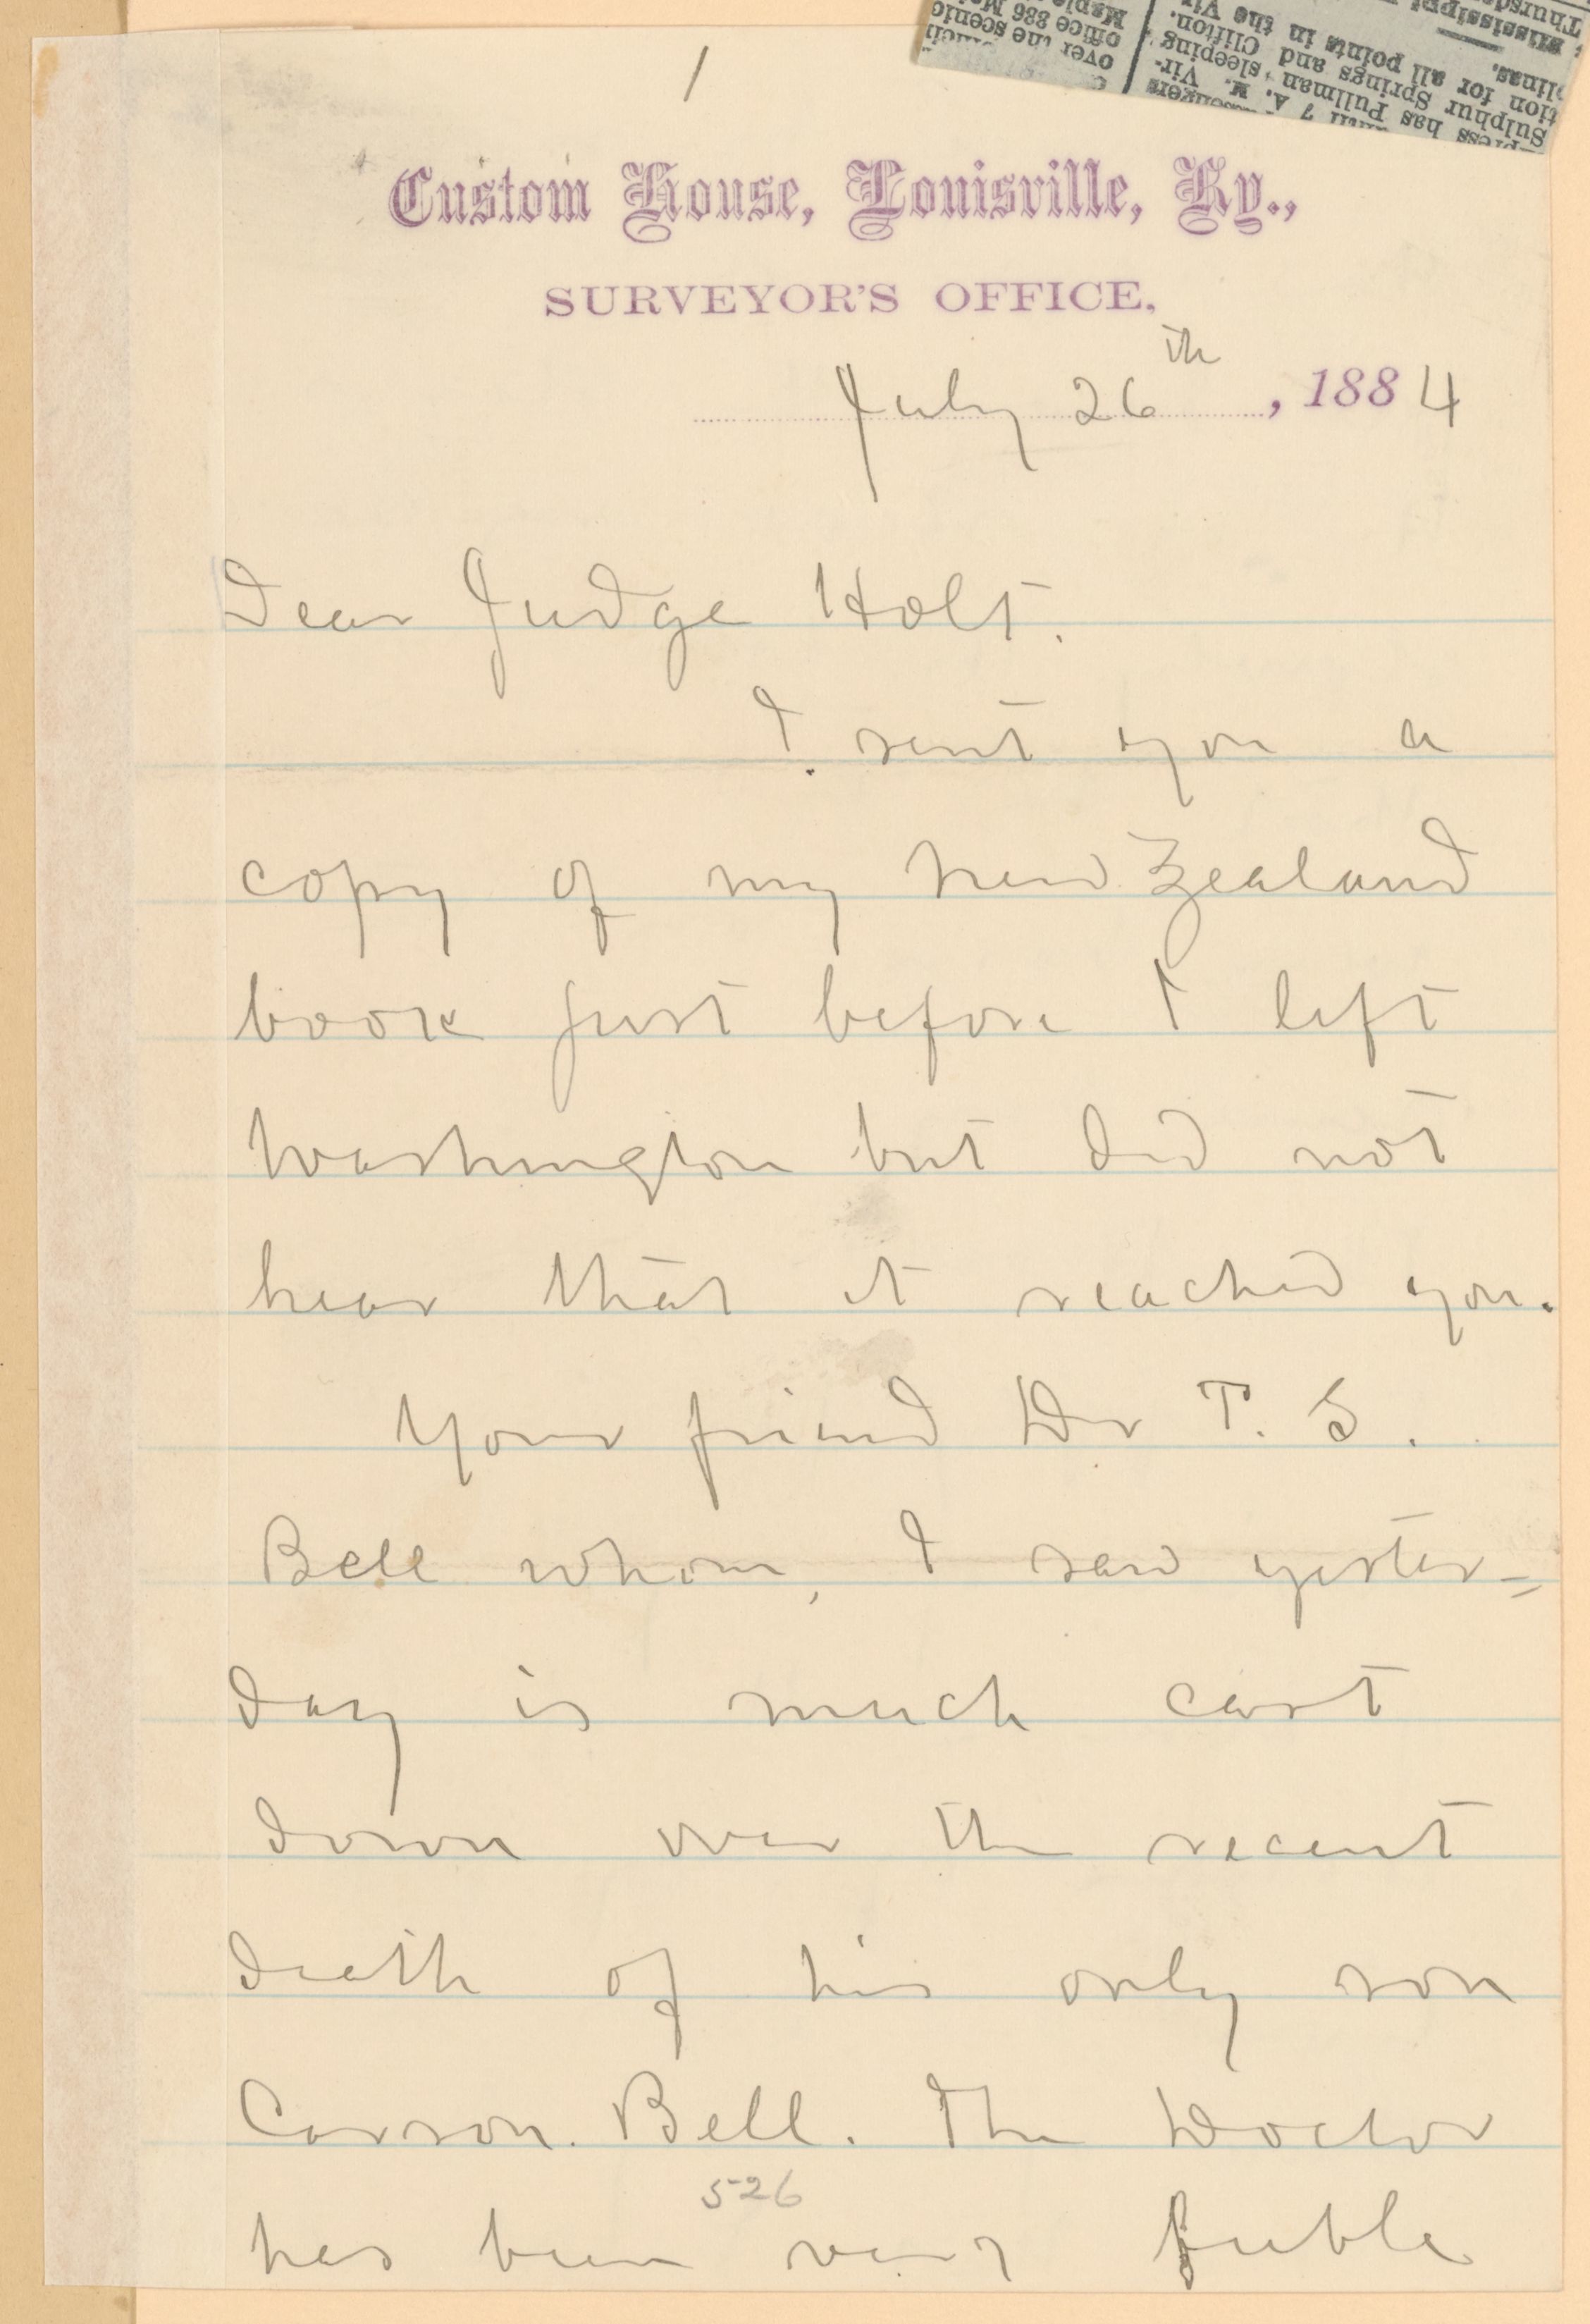 1
Custom House, Louisville, Ky.,
SURVEYOR'S OFFICE,
July 26th, 1884
Dear Judge Holt.
I sent you a
copy of my New Zealand
book just before I left
Washington but did not
hear that it reached you.
Your friend Dr T. S.
Bell whom, I saw yester=
day is much cast
down over the recent
death of his only son
Carson. Bell. The Doctor
526
has been very feeble
over the scenic
office 886
Thursday
Mississippi
all points in the
Sulphur Springs and Clifton
press has Pullman sleeping
until 7 A. M.